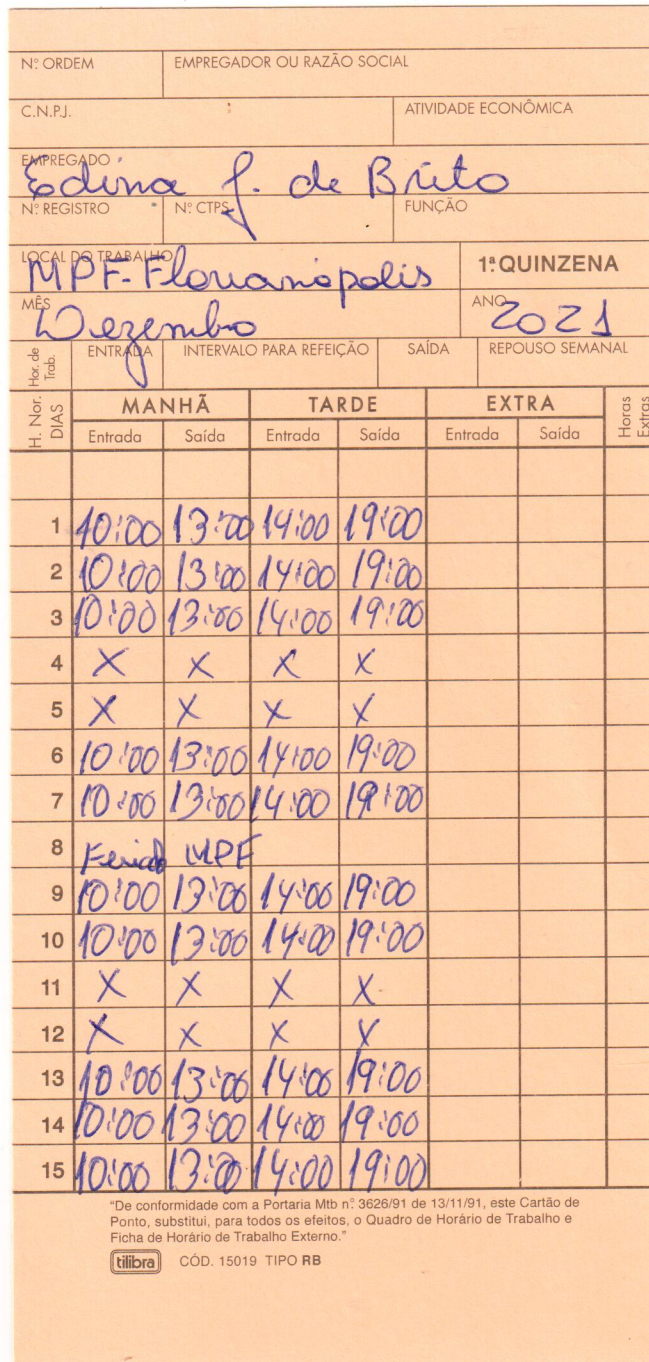 Nº ORDEM EMPREGADOR OU RAZÃO SOCIAL
C.N.P.J. ATIVIDADE ECONÔMICA
EMPREGADO
Edina J. de Brito
Nº REGISTRO Nº CTPS FUNÇÃO
LOCAL DO TRABALHO 1ª QUINZENA
MPF-Florianópolis
MÊS ANO
Dezembro 2021
Hor. de Trab. ENTRADA INTERVALO PARA REFEIÇÃO SAÍDA REPOUSO SEMANAL
H. Nor. DIAS MANHÃ TARDE EXTRA Horas Extras
Entrada Saída Entrada Saída Entrada Saída
1 10:00 13:00 14:00 19:00
2 10:00 13:00 14:00 19:00
3 10:00 13:00 14:00 19:00
4 X X X X
5 X X X X
6 10:00 13:00 14:00 19:00
7 10:00 13:00 14:00 19:00
8 Feriado MPF
9 10:00 13:00 14:00 19:00
10 10:00 13:00 14:00 19:00
11 X X X X
12 X X X X
13 10:00 13:00 14:00 19:00
14 10:00 13:00 14:00 19:00
15 10:00 13:00 14:00 19:00
"De conformidade com a Portaria Mtb nº 3626/91 de 13/11/91, este Cartão de
Ponto, substitui, para todos os efeitos, o Quadro de Horário de Trabalho e
Ficha de Horário de Trabalho Externo."
tilibra CÓD. 15019 TIPO RB